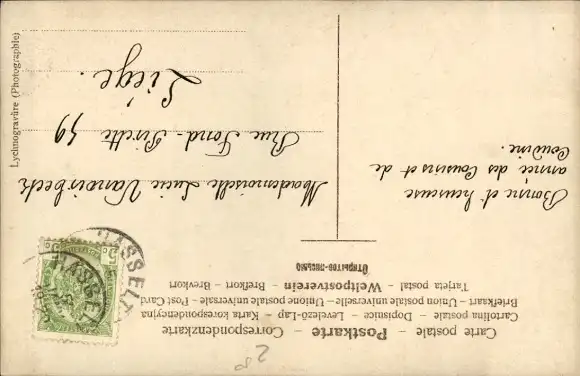 Carte postale – Postkarte – Correspondenzkarte
Cartolina postale – Dopisnice – Levelező-Lap – Karta korespondencyjna
Briefkaart – Union postale universelle – Unione postale universale – Post Card
Tarjeta postal – Weltpostverein – Brefkort – Brevkort
Открытое-письмо
Bonne et heureuse
année des Cousins et de
Cousine.
Mademoiselle Lucie
Rue Fond-Pirette 59
Liège.
HASSELT
HASSELT
5
Lychnogravüre (Photographie)
28